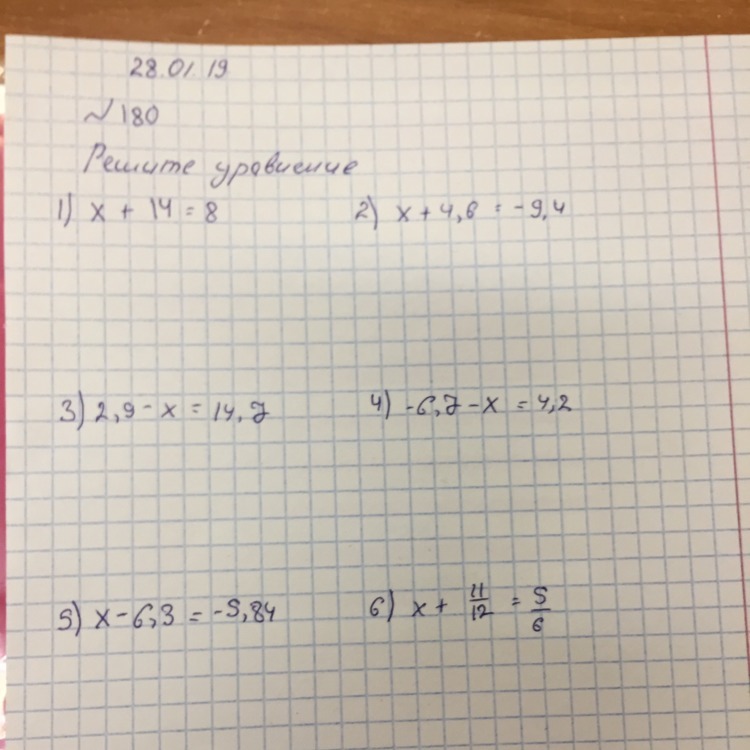 28.01.19
№180
Решите уравнение
1) x + 14 = 8 2) x + 4,6 = -9,4
3) 2,9 - x = 14,7 4) -6,7 - x = 4,2
5) x - 6,3 = -5,84 6) x + 11/12 = 5/6